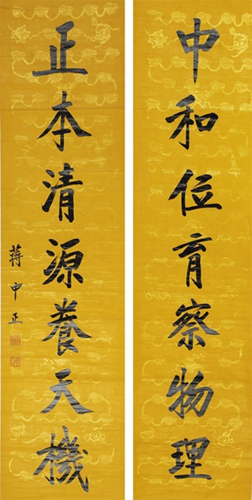 中和位育察物理
正本清源養天機
蔣中正